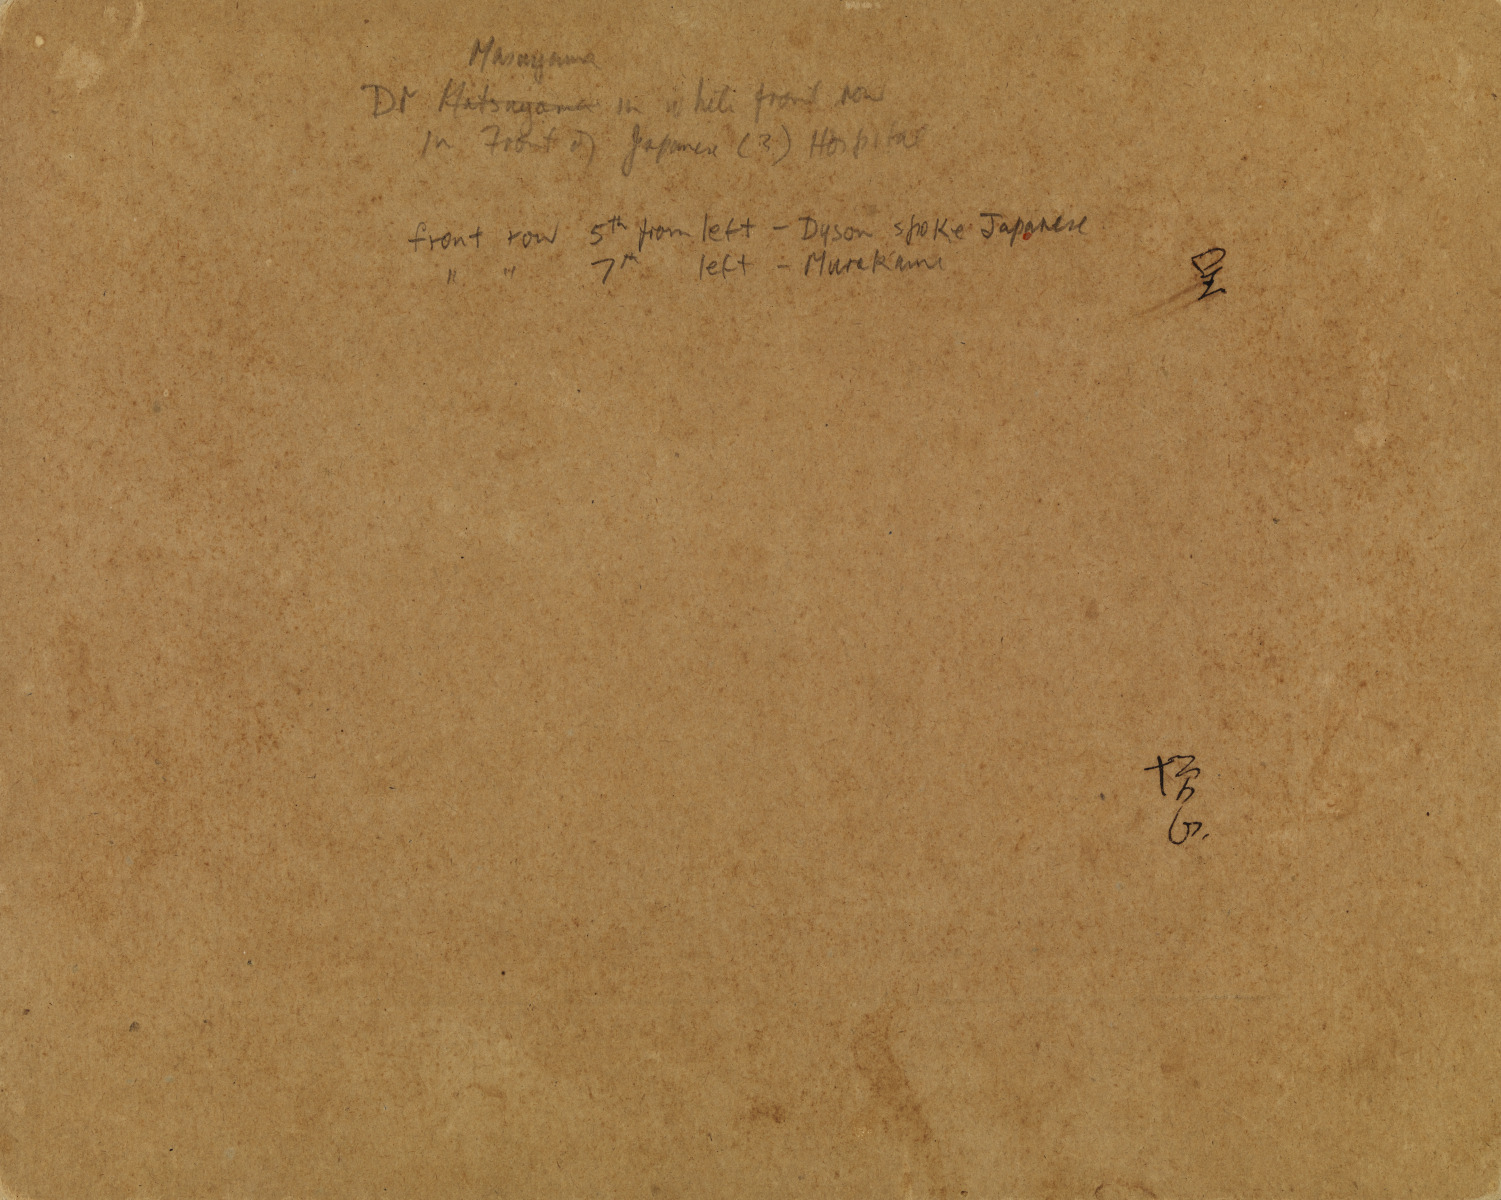 Masuyama
Dr Matsuyama in white front row
in Front of Japanese (?) Hospital
front row 5th from left - Dyson spoke Japanese
" " 7th left - Murakami
呈